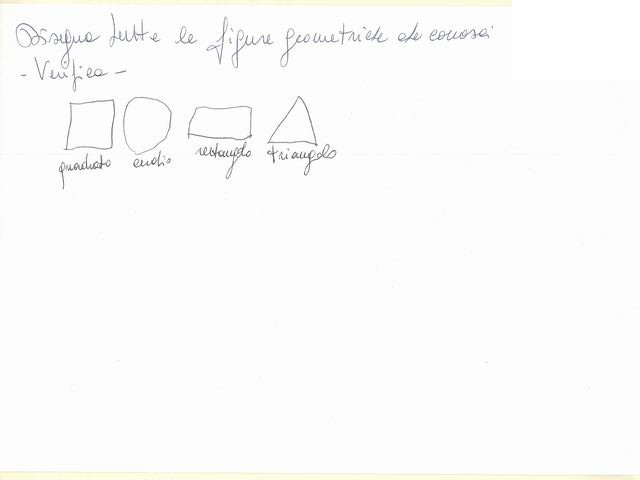 Disegna tutte le figure geometriche che conosci
- Verifica -
quadrato cerchio rettangolo triangolo